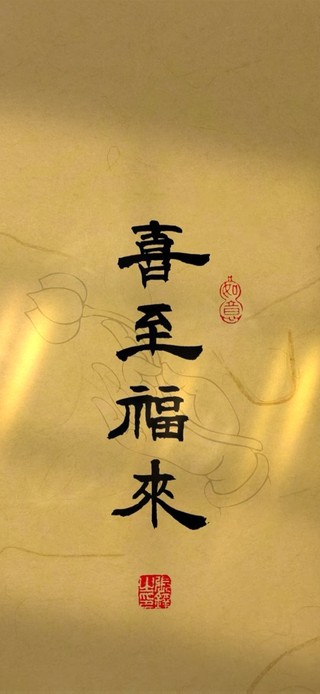 喜至福來
如意